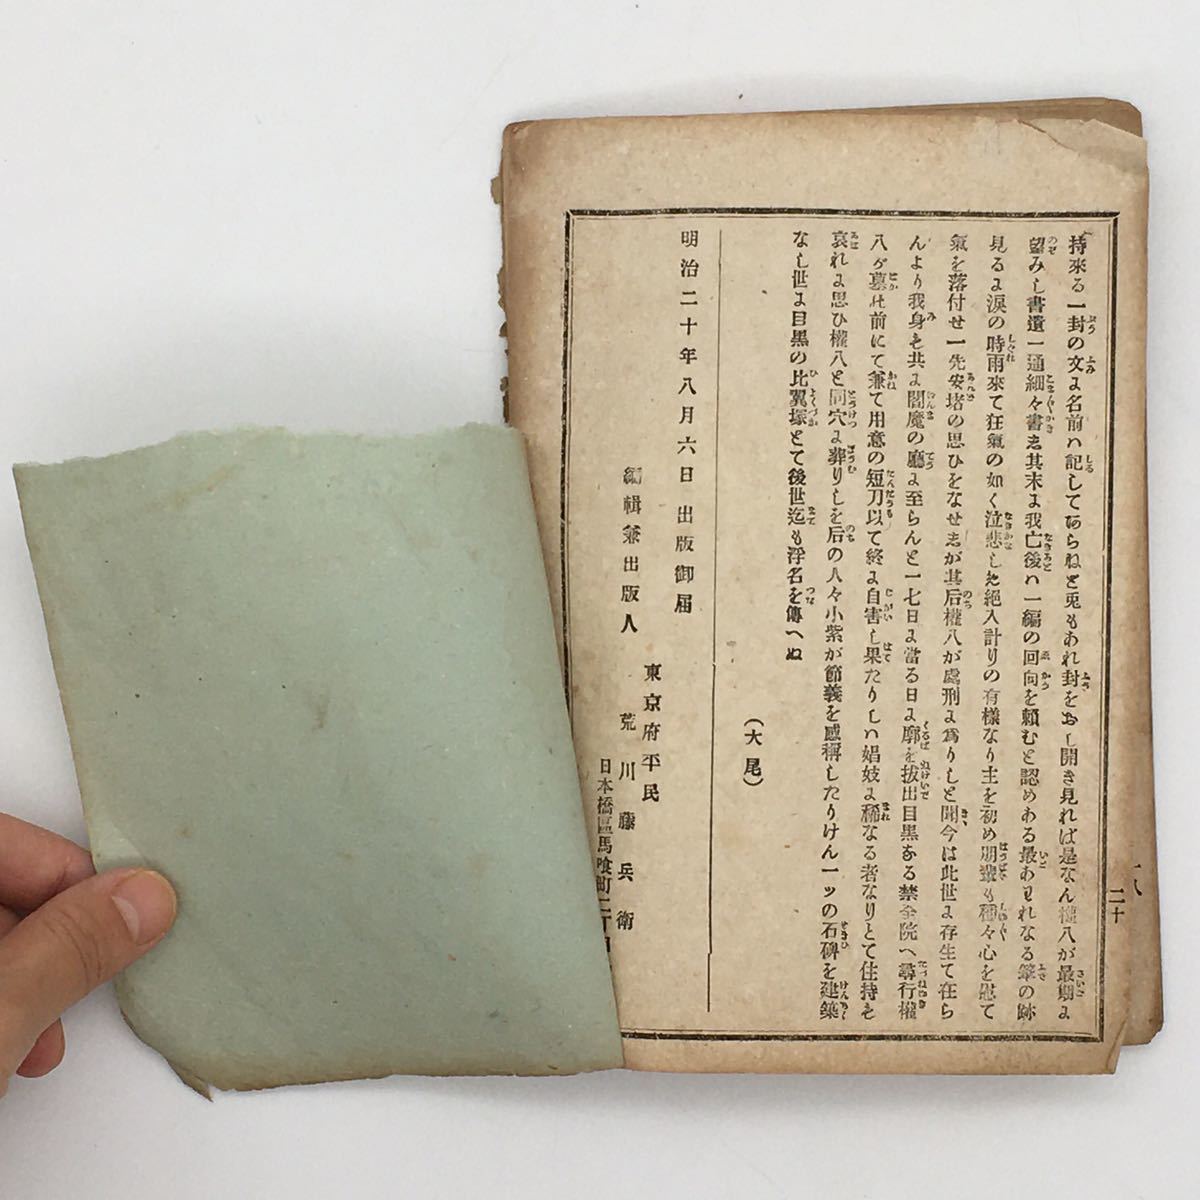 持來る一封の文よ名前ハ記してあらねど兎もあれ封をおし開き見れば是なん權八が最期よ
望みし書遺一通細々書き其末よ我亡後ハ一編の回向を頼むと認めある最あわれなる筆の跡
見るよ涙の時雨來て狂氣の如く泣悲しみ絕入計りの有樣なり主を初め朋輩も種々心を慰て
氣を落付せ一先安堵の思ひをなせしが其后權八が處刑よ爲りしと聞今は此世よ存生て在ら
んより我身も共よ閻魔の廳よ至らんと一七日よ當る日よ廓を拔出目黑なる禁全院へ尋行權
八が墓の前にて兼て用意の短刀以て終よ自害し果たりしハ娼妓よ稀なる者なりとて住持も
哀れよ思ひ權八と同穴よ葬りしを后の人々小紫が節義を感稱したりけん一ッの石碑を建築
なし世よ目黑の比翼塚とて後世迄も浮名を傳へぬ
(大尾)
明治二十年八月六日出版御届
東京府平民
編輯兼出版人 荒川藤兵衛
日本橋區馬喰町二丁目
二十